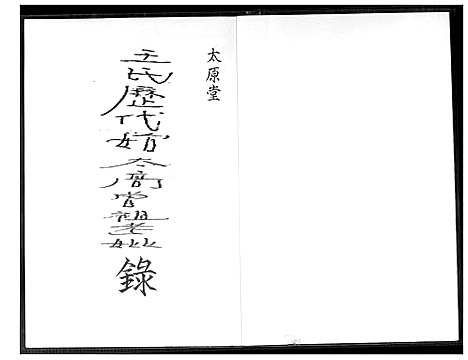 太原堂
王氏歷代始太高曾祖考妣錄